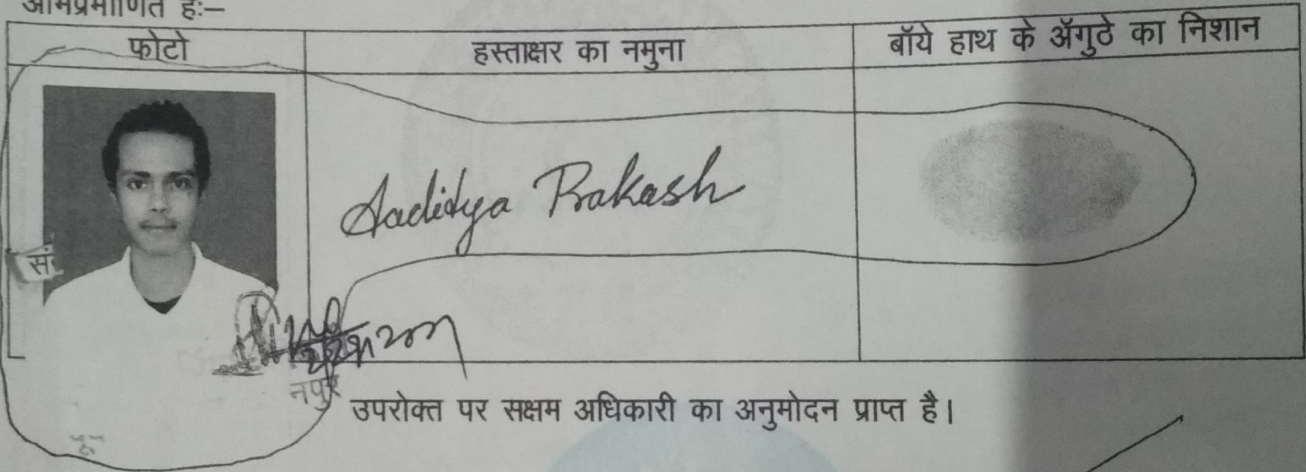 अभिप्रमाणित है:–
फोटो हस्ताक्षर का नमुना बॉये हाथ के अँगुठे का निशान
Aaditya Prakash
सं.
नपुर
उपरोक्त पर सक्षम अधिकारी का अनुमोदन प्राप्त है।